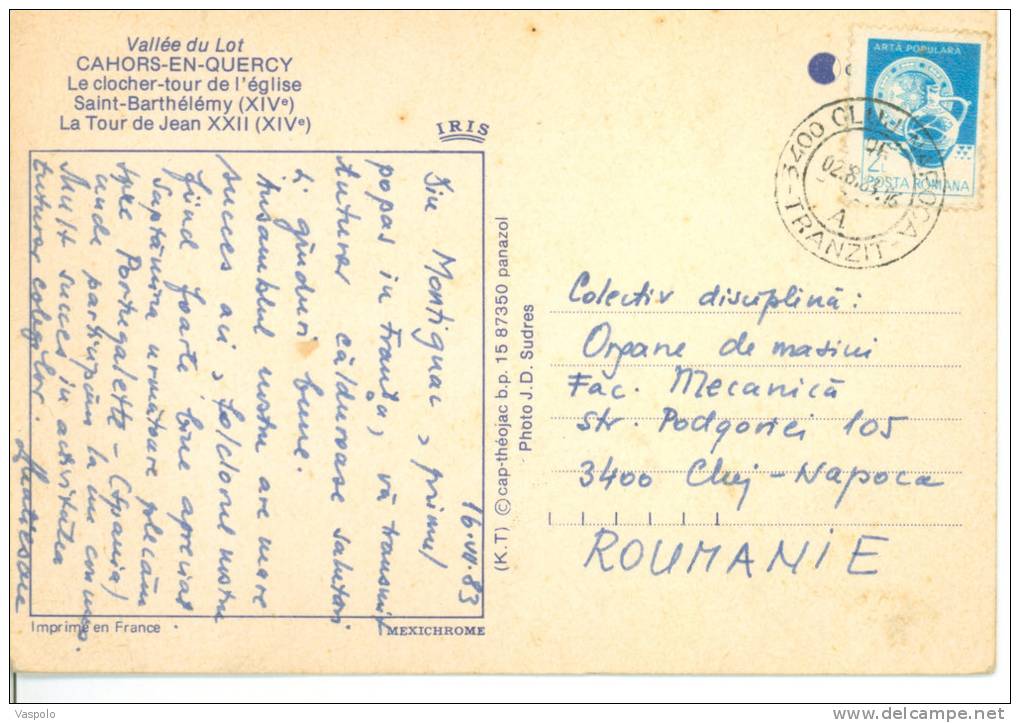 Vallée du Lot
CAHORS-EN-QUERCY
Le clocher-tour de l'église
Saint-Barthélémy (XIVe)
La Tour de Jean XXII (XIVe)
IRIS
16.VII.83
Din Montignac, primul
popas in Franța, vă transmit
tuturor călduroase salutări
și gînduri bune.
Ansamblul nostru are mare
succes aici, folclorul nostru
fiind foarte bine apreciat
Săptămîna următoare plecăm
spre Portugalette - (Spania)
unde participăm la un concurs.
Mult succes in activitatea
tuturor colegilor.
Imprimé en France
MEXICHROME
(K.T) © cap-théojac b.p. 15 87350 panazol
Photo J.D. Sudres
ARTĂ POPULARĂ
2L
POSTA ROMANA
3400 CLUJ-NAPOCA
02.8.83.16
A
TRANZIT
Colectiv disciplină:
Organe de masini
Fac. Mecanică
Str. Podgoriei 105
3400 Cluj-Napoca
ROUMANIE
Vaspolo
www.delcampe.net